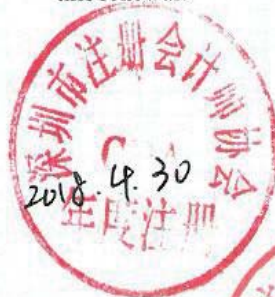 深圳市注册会计师协会
2018.4.30
年度注册